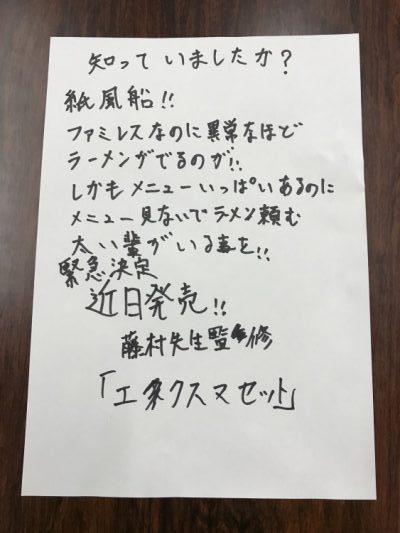 知っていましたか?
紙風船!!
ファミレスなのに異常なほど
ラーメンがでるのが!!
しかもメニューいっぱいあるのに
メニュー見ないでラメン頼む
太い輩がいる事を!!
緊急決定
近日発売!!
藤村先生監修
「エネクスマセット」